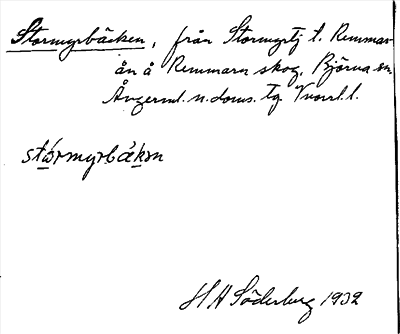 Stormyrbäcken, från Stormyrtj t. Remmar-
ån å Remmarn skog, Björna sn,
Ångerml. n. doms. tg. Vnorrl. l.
stórmyrbäkɘn
H A Söderberg 1932